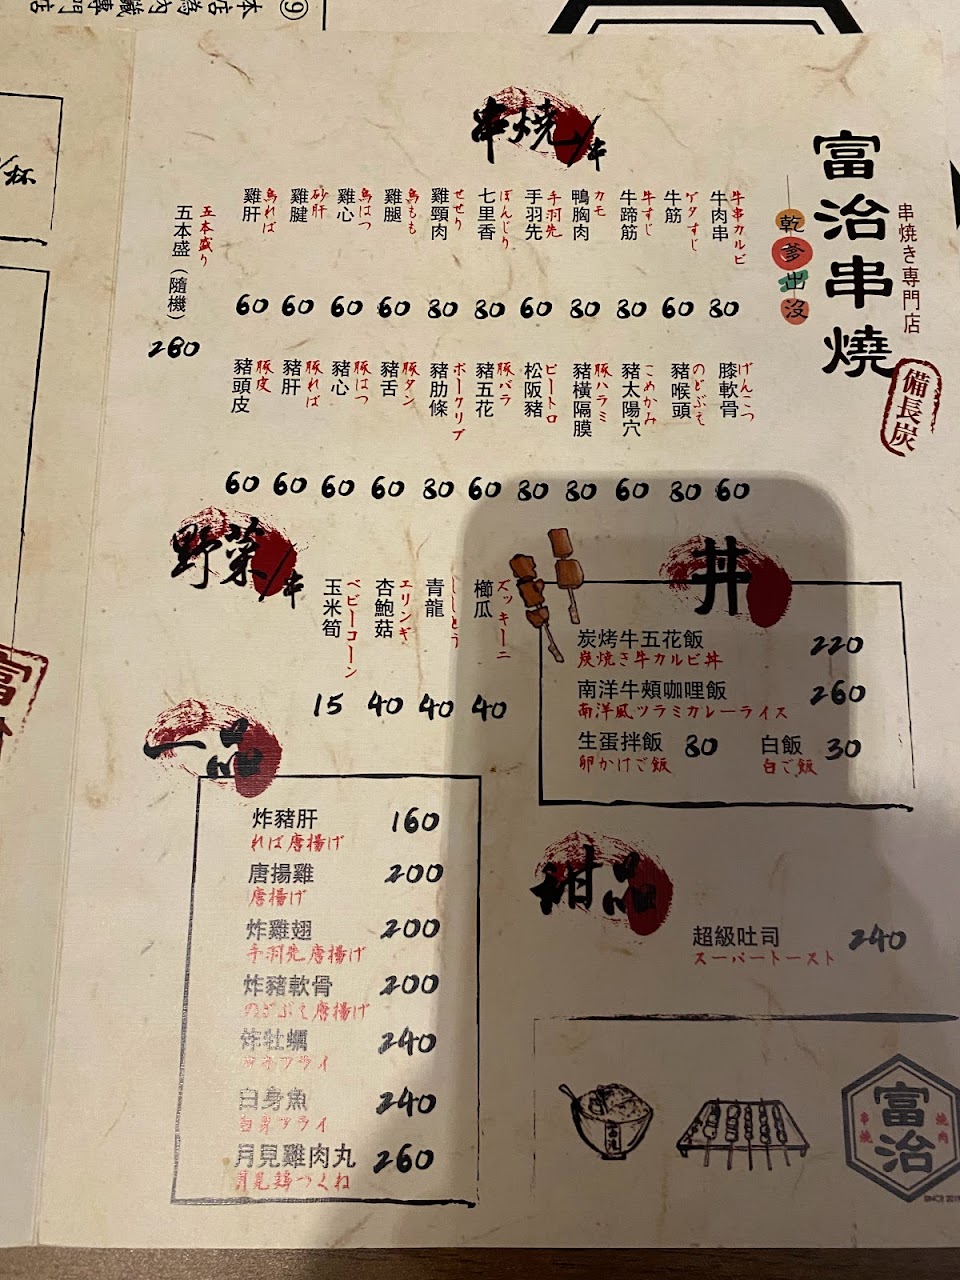 ⑨
本店為內臟專門店
富治串燒
串焼き専門店
乾爹出沒
備長炭
串燒/串
牛肉串 牛串カルビ 80
牛筋 ゲタすじ 60
牛蹄筋 牛すじ 80
鴨胸肉 カモ 80
手羽先 手羽先 60
七里香 ぼんじり 80
雞頸肉 せせり 80
雞腿 鳥もも 60
雞心 鳥はつ 60
雞腱 砂肝 60
雞肝 鳥れば 60
五本盛(隨機) 五本盛り 280
膝軟骨 げんこつ 60
豬喉頭 のどぶえ 80
豬太陽穴 こめかみ 60
豬橫隔膜 豚ハラミ 80
松阪豬 ピートロ 80
豬五花 豚バラ 60
豬肋條 ポークリブ 80
豬舌 豚タン 60
豬心 豚はつ 60
豬肝 豚れば 60
豬頭皮 豚皮 60
野菜/串
櫛瓜 ズッキーニ 40
青龍 ししとう 40
杏鮑菇 エリンギ 40
玉米筍 ベビーコーン 15
丼
炭烤牛五花飯 220
炭焼き牛カルビ丼
南洋牛頰咖哩飯 260
南洋風ツラミカレーライス
生蛋拌飯 80 白飯 30
卵かけご飯 白ご飯
一品
炸豬肝 160
れば唐揚げ
唐揚雞 200
唐揚げ
炸雞翅 200
手羽先唐揚げ
炸豬軟骨 200
のどぶえ唐揚げ
炸牡蠣 240
カキフライ
白身魚 240
白身フライ
月見雞肉丸 260
月見鶏つくね
甜品
超級吐司 240
スーパートースト
富治
串燒
燒肉
/杯